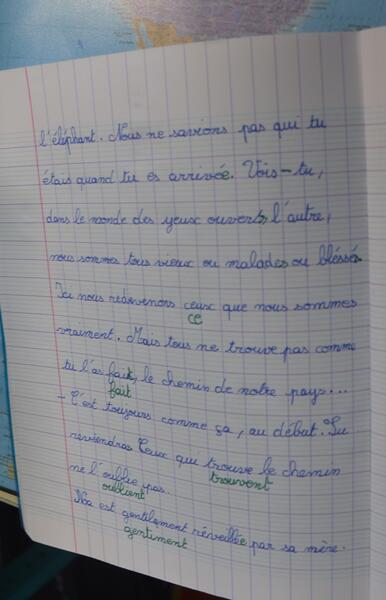 l'éléphant. Nous ne savions pas qui tu
étais quand tu es arrivée. Vois-tu,
dans le monde des yeux ouverts l'autre,
nous sommes tous vieux ou malades ou blessés
Ici nous redevenons ceux que nous sommes
ce
vraiment. Mais tous ne trouve pas comme
tu l'as fait, le chemin de notre pays...
fait
- C'est toujours comme ça, au début. Tu
reviendras Ceux qui trouve le chemin
trouvent
ne l'oublie pas.
oublient
Noa est gentilement réveillée par sa mère.
gentiment